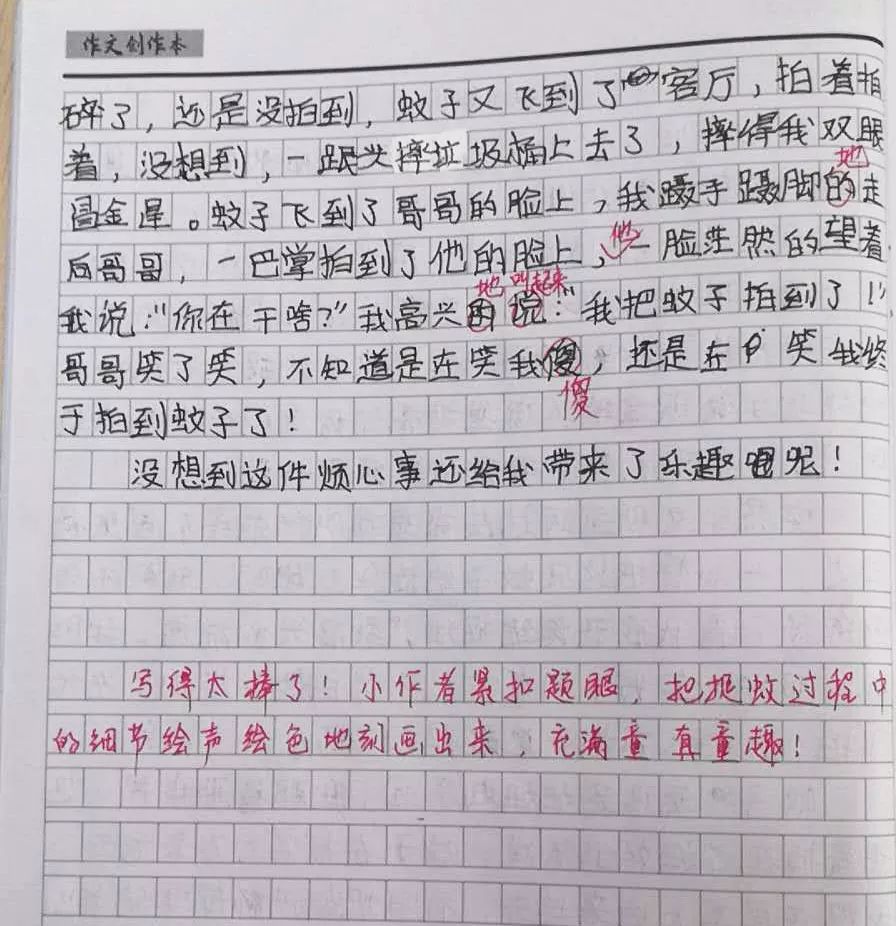 作文创作本
碎了，还是没拍到，蚊子又飞到了客厅，拍着拍
着，没想到，一跟头摔垃圾桶上去了，摔得我双眼
地
冒金星。蚊子飞到了哥哥的脸上，我蹑手蹑脚的走
向哥哥，一巴掌拍到了他的脸上，他一脸茫然的望着
地 叫起来
我说："你在干啥？"我高兴的说："我把蚊子拍到了！"
哥哥笑了笑，不知道是在笑我傻，还是在笑我终
傻
于拍到蚊子了！
没想到这件烦心事还给我带来了乐趣呢！
写得太棒了！小作者紧扣题眼，把拍蚊过程中
的细节绘声绘色地刻画出来，充满童真童趣！